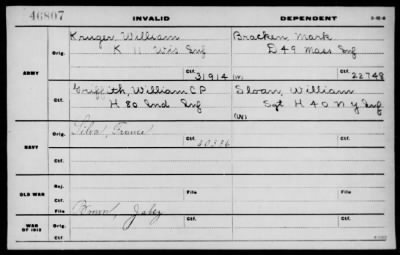 46807
INVALID
DEPENDENT
Kruger, William
Bracken, Mark
Orig.
K 11 Wis Inf
D 49 Mass Inf
ARMY
Ctf.
31914
(M)
Ctf.
22748
Griffith, William C P
Sloan, William
Orig.
H 80 Ind Inf
Sgt H 40 N Y Inf
Ctf.
(W)
Silva, Francis
Orig.
NAVY
Ctf.
40336
Ctf.
OLD WAR
Rej.
Ctf.
File
File
WAR OF 1812
Orig.
Ctf.
Brown, Jabez
Ctf.
Ctf.